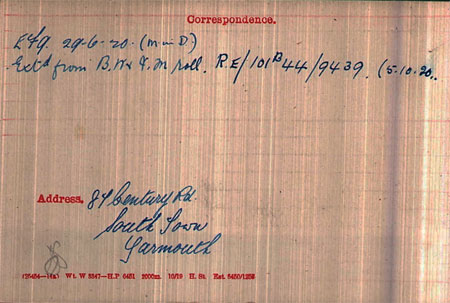 Correspondence.
EFG. 29-6-20. (M in D)
Extd from B.W & V.M roll. RE/101B44/9439. (5.10.20.
Address. 84 Century Rd.
South Town
Yarmouth
Wt. W 5347—H.P 6451 2000m. 10/19 H. St. Est. 6450/1258